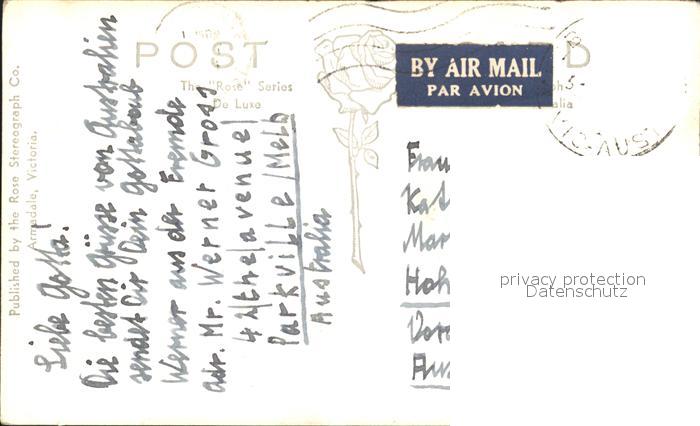 POST CARD
The "Rose" Series
De Luxe
BY AIR MAIL
PAR AVION
VIC. AUST
Published by the Rose Stereograph Co.
Armadale, Victoria.
Liebe Gotta!
Die besten Grüsse von Australien
sendet Dir Dein Gottabub
Werner aus der Fremde
adr. Mr. Werner Gross
Parkville / Melb
Australia
Frau
Kat
Mar
Hoh
privacy protection
Datenschutz